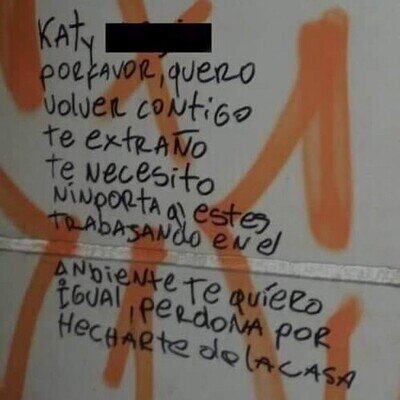 KATY
PORFAVOR, QUERO
VOLVER CONTIGO
TE EXTRAÑO
TE NECESITO
NINPORTA Q ESTES
TRABASANDO EN EL
ANBIENTE TE QUIERO
IGUAL, PERDONA POR
HECHARTE de LA CASA